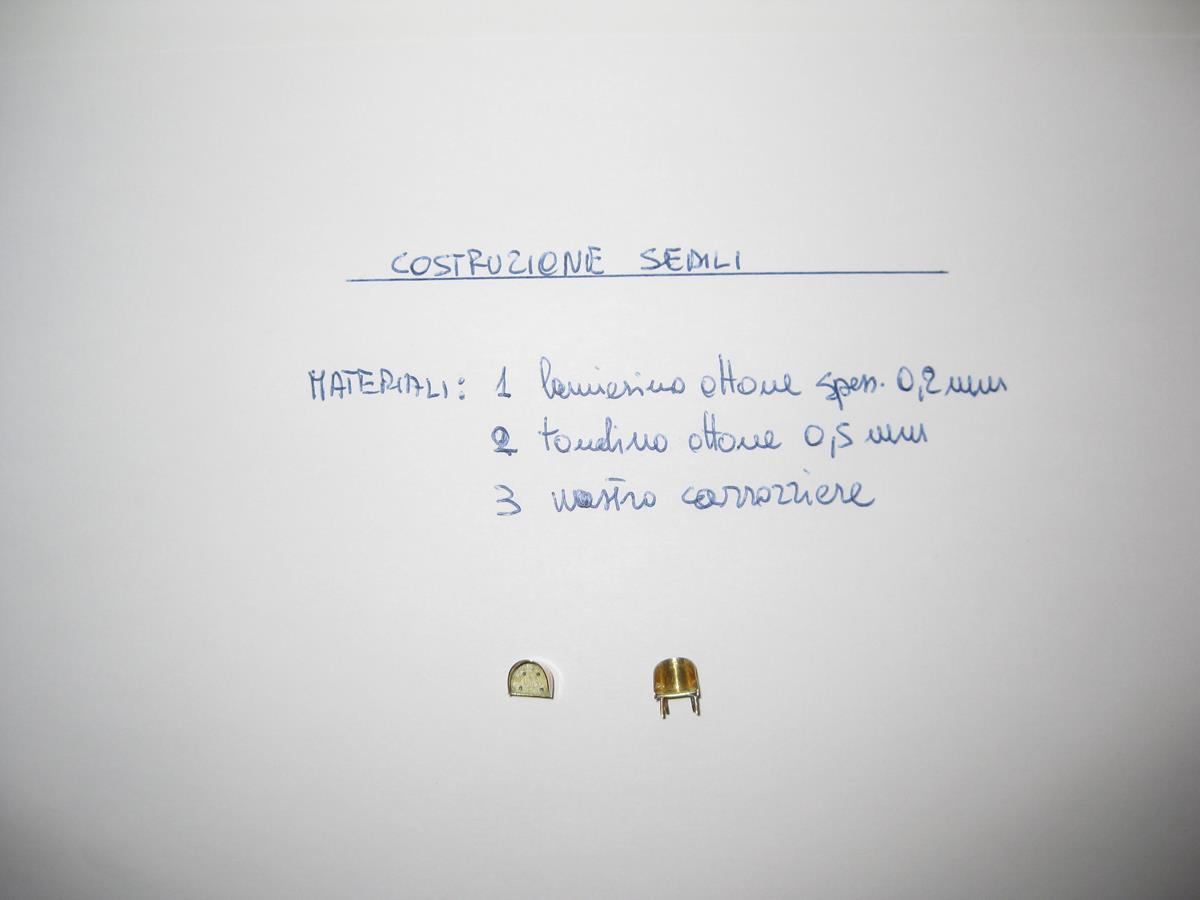 COSTRUZIONE SEDILI
MATERIALI: 1 lamierino ottone spess. 0,2 mm
2 tondino ottone 0,5 mm
3 nastro carrozziere